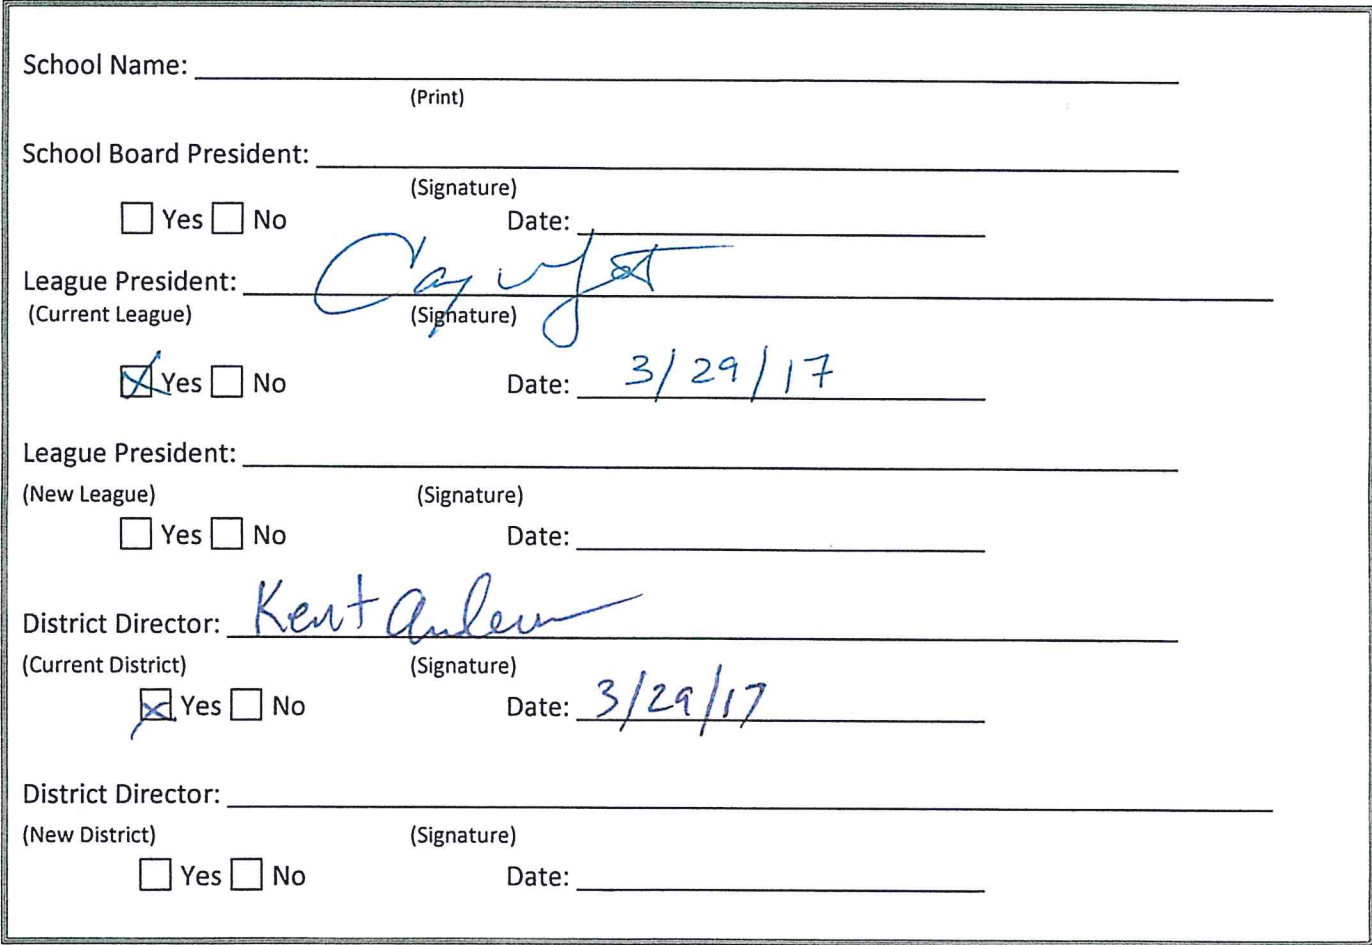 School Name:
(Print)
School Board President:
(Signature)
Yes No Date:
League President:
(Current League) (Signature)
Yes No Date: 3/29/17
League President:
(New League) (Signature)
Yes No Date:
District Director: Kent
(Current District) (Signature)
Yes No Date: 3/29/17
District Director:
(New District) (Signature)
Yes No Date: